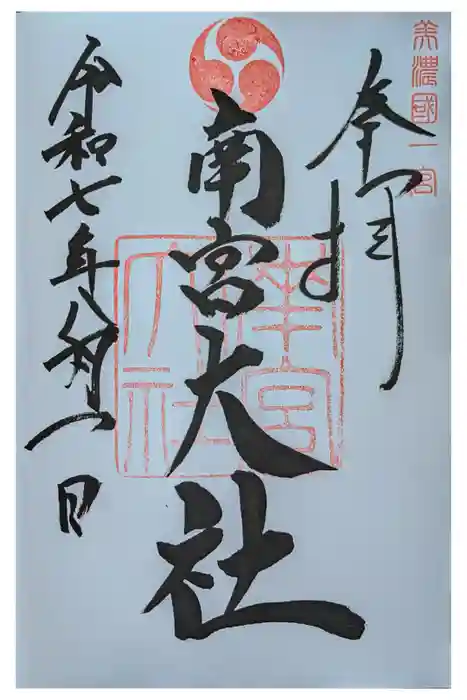 美濃國一宮
奉拝
南宮大社
南宮大社
令和七年八朔一日